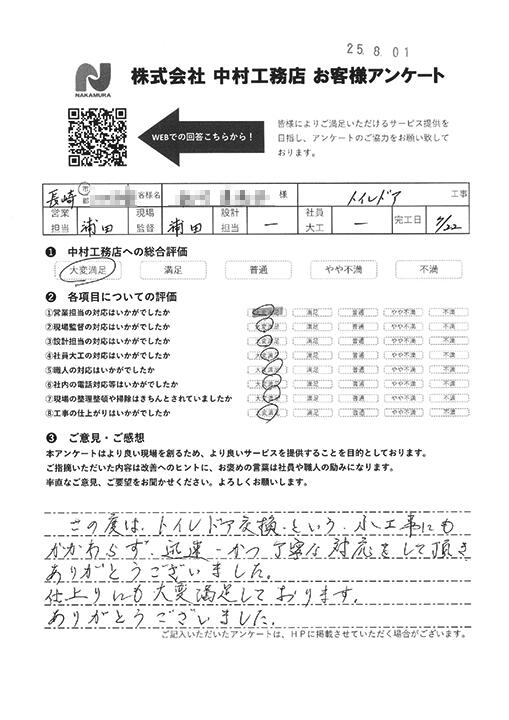 25.8.01
NAKAMURA
株式会社 中村工務店 お客様アンケート
WEBでの回答こちらから！
皆様によりご満足いただけるサービス提供を
目指し、アンケートのご協力をお願い致して
おります。
長崎 市 郡 お客様名 様 トイレドア 工事
営業担当 浦田 現場監督 浦田 設計担当 ー 社員大工 ー 完工日 7/22
❶ 中村工務店への総合評価
大変満足 満足 普通 やや不満 不満
❷ 各項目についての評価
①営業担当の対応はいかがでしたか 大変満足 満足 普通 やや不満 不満
②現場監督の対応はいかがでしたか 大変満足 満足 普通 やや不満 不満
③設計担当の対応はいかがでしたか 大変満足 満足 普通 やや不満 不満
④社員大工の対応はいかがでしたか 大変満足 満足 普通 やや不満 不満
⑤職人の対応はいかがでしたか 大変満足 満足 普通 やや不満 不満
⑥社内の電話対応等はいかがでしたか 大変満足 満足 普通 やや不満 不満
⑦現場の整理整頓や掃除はきちんとされていましたか 大変満足 満足 普通 やや不満 不満
⑧工事の仕上がりはいかがでしたか 大変満足 満足 普通 やや不満 不満
❸ ご意見・ご感想
本アンケートはより良い現場を創るため、より良いサービスを提供することを目的としております。
ご指摘いただいた内容は改善へのヒントに、お褒めの言葉は社員や職人の励みになります。
率直なご意見、ご要望をお聞かせください。よろしくお願いします。
この度は、トイレドア交換、という、小工事にも
かかわらず、迅速、かつ丁寧な対応をして頂き
ありがとうございました。
仕上りにも大変満足しております。
ありがとうございました。
ご記入いただいたアンケートは、ＨＰに掲載させていただく場合がございます。